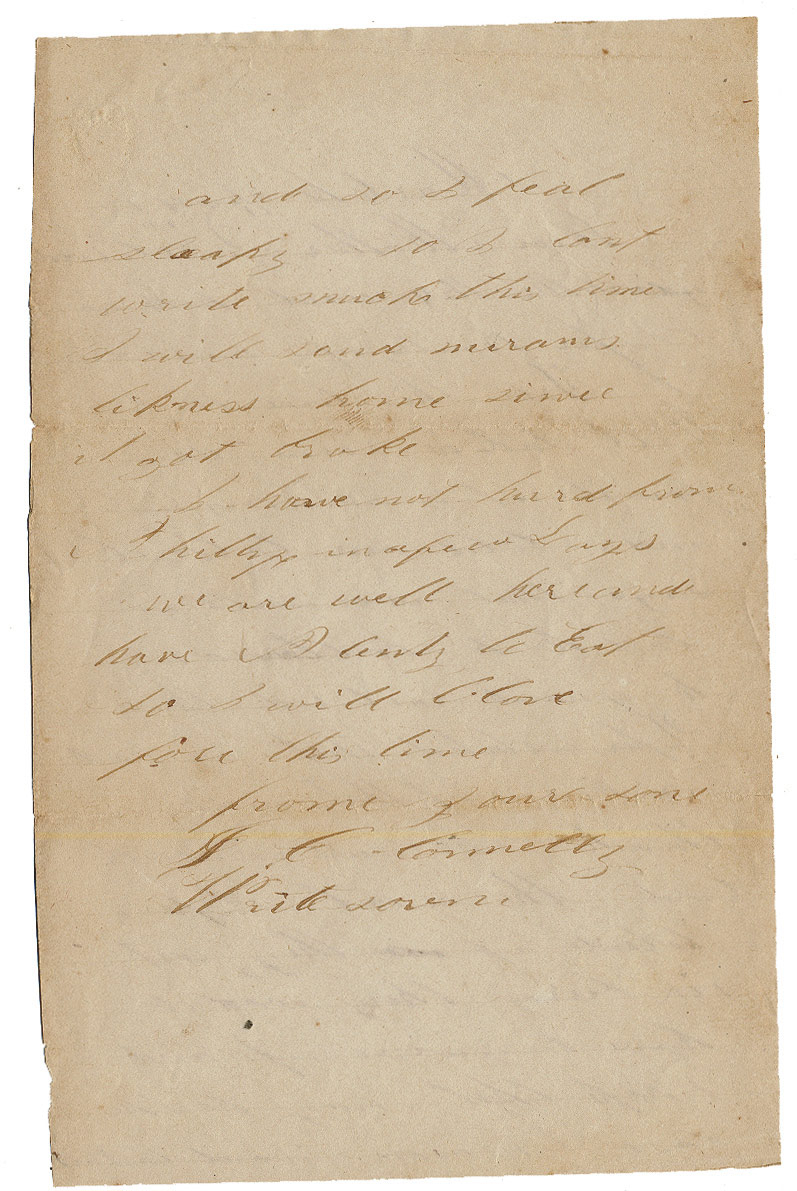 and so I feal
sleapy so I cant
write much this time
I will send mirams
likness home since
it got broke
I have not hurd from
Philly in a few Days
we are well here and
have Plenty to Eat
so I will Close
for this time
frome your sone
J. C. Connelly
Write soven